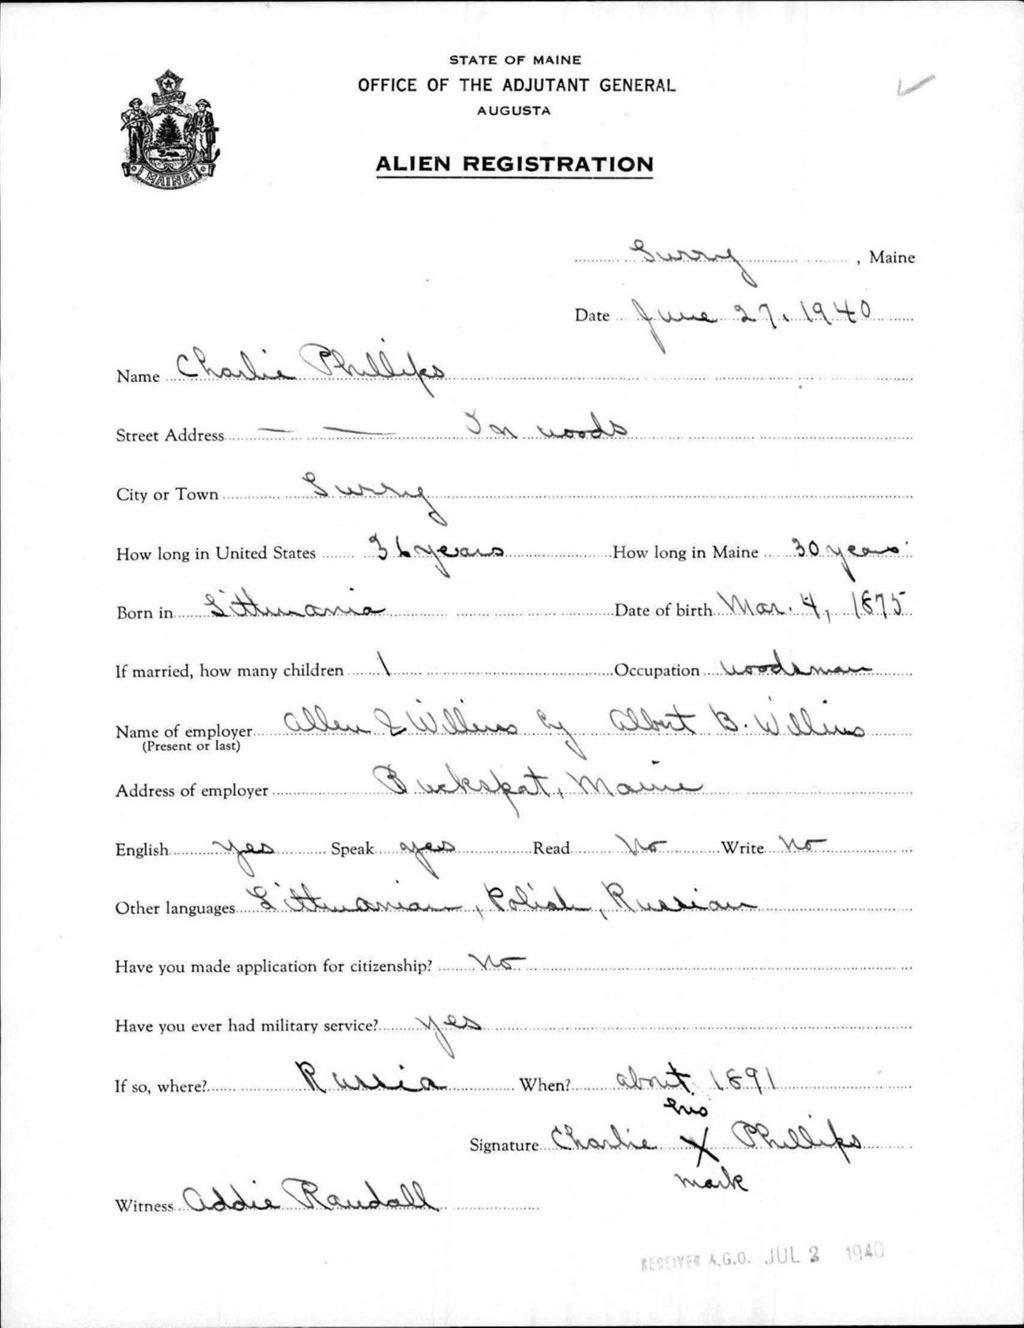 STATE OF MAINE
OFFICE OF THE ADJUTANT GENERAL
AUGUSTA
ALIEN REGISTRATION
MAINE
Surry, Maine
Date June 27, 1940
Name Charlie Phillips
Street Address — — In woods
City or Town Surry
How long in United States 36 years How long in Maine 30 years
Born in Litthuania Date of birth Mar. 4, 1875
If married, how many children 1 Occupation woodsman
Name of employer Allen & Willins by Albert B. Willins
(Present or last)
Address of employer Buckspot, Maine
English yes Speak yes Read No Write No
Other languages Litthuanian, Polish, Russian
Have you made application for citizenship? No
Have you ever had military service? yes
If so, where? Russia When? about 1891
his
Signature Charlie X Phillips
mark
Witness Addie Randall
RECEIVED A.G.O. JUL 2 1940